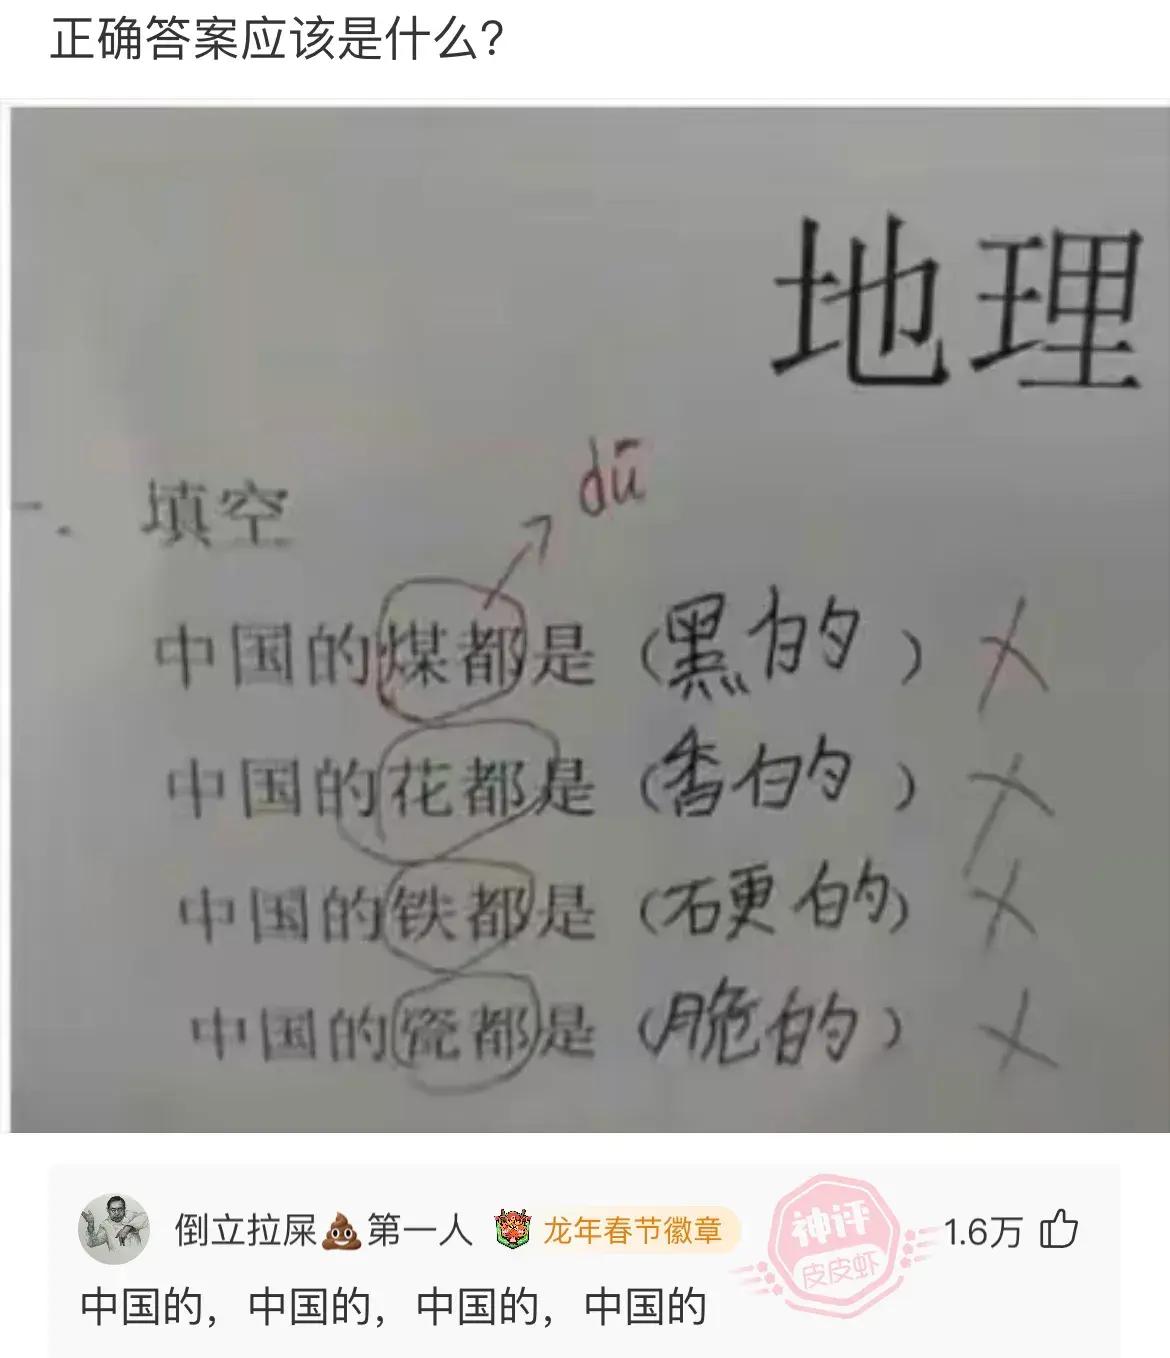 正确答案应该是什么？
地理
dū
一、填空
中国的煤都是（黑的）
中国的花都是（香的）
中国的铁都是（硬的）
中国的瓷都是（脆的）
倒立拉屎💩第一人 龙年春节徽章 神评 皮皮虾 1.6万
中国的，中国的，中国的，中国的